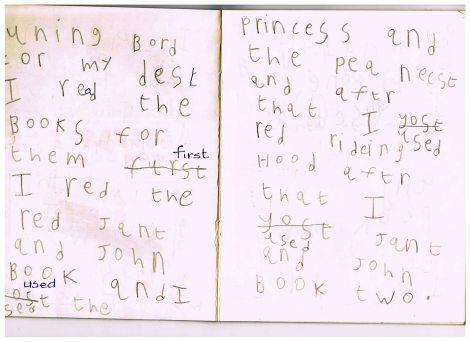 uning Bord
for my dest
I read the
BOOKS for
first
them first
I red the
red Jant
and John
BOOK and I
used
yost the
sed
princess and
the pea necst
and aftr
that I yost
used
red rideing
HOOD aftr
that I
yost Jant
used
and John
BOOK two.